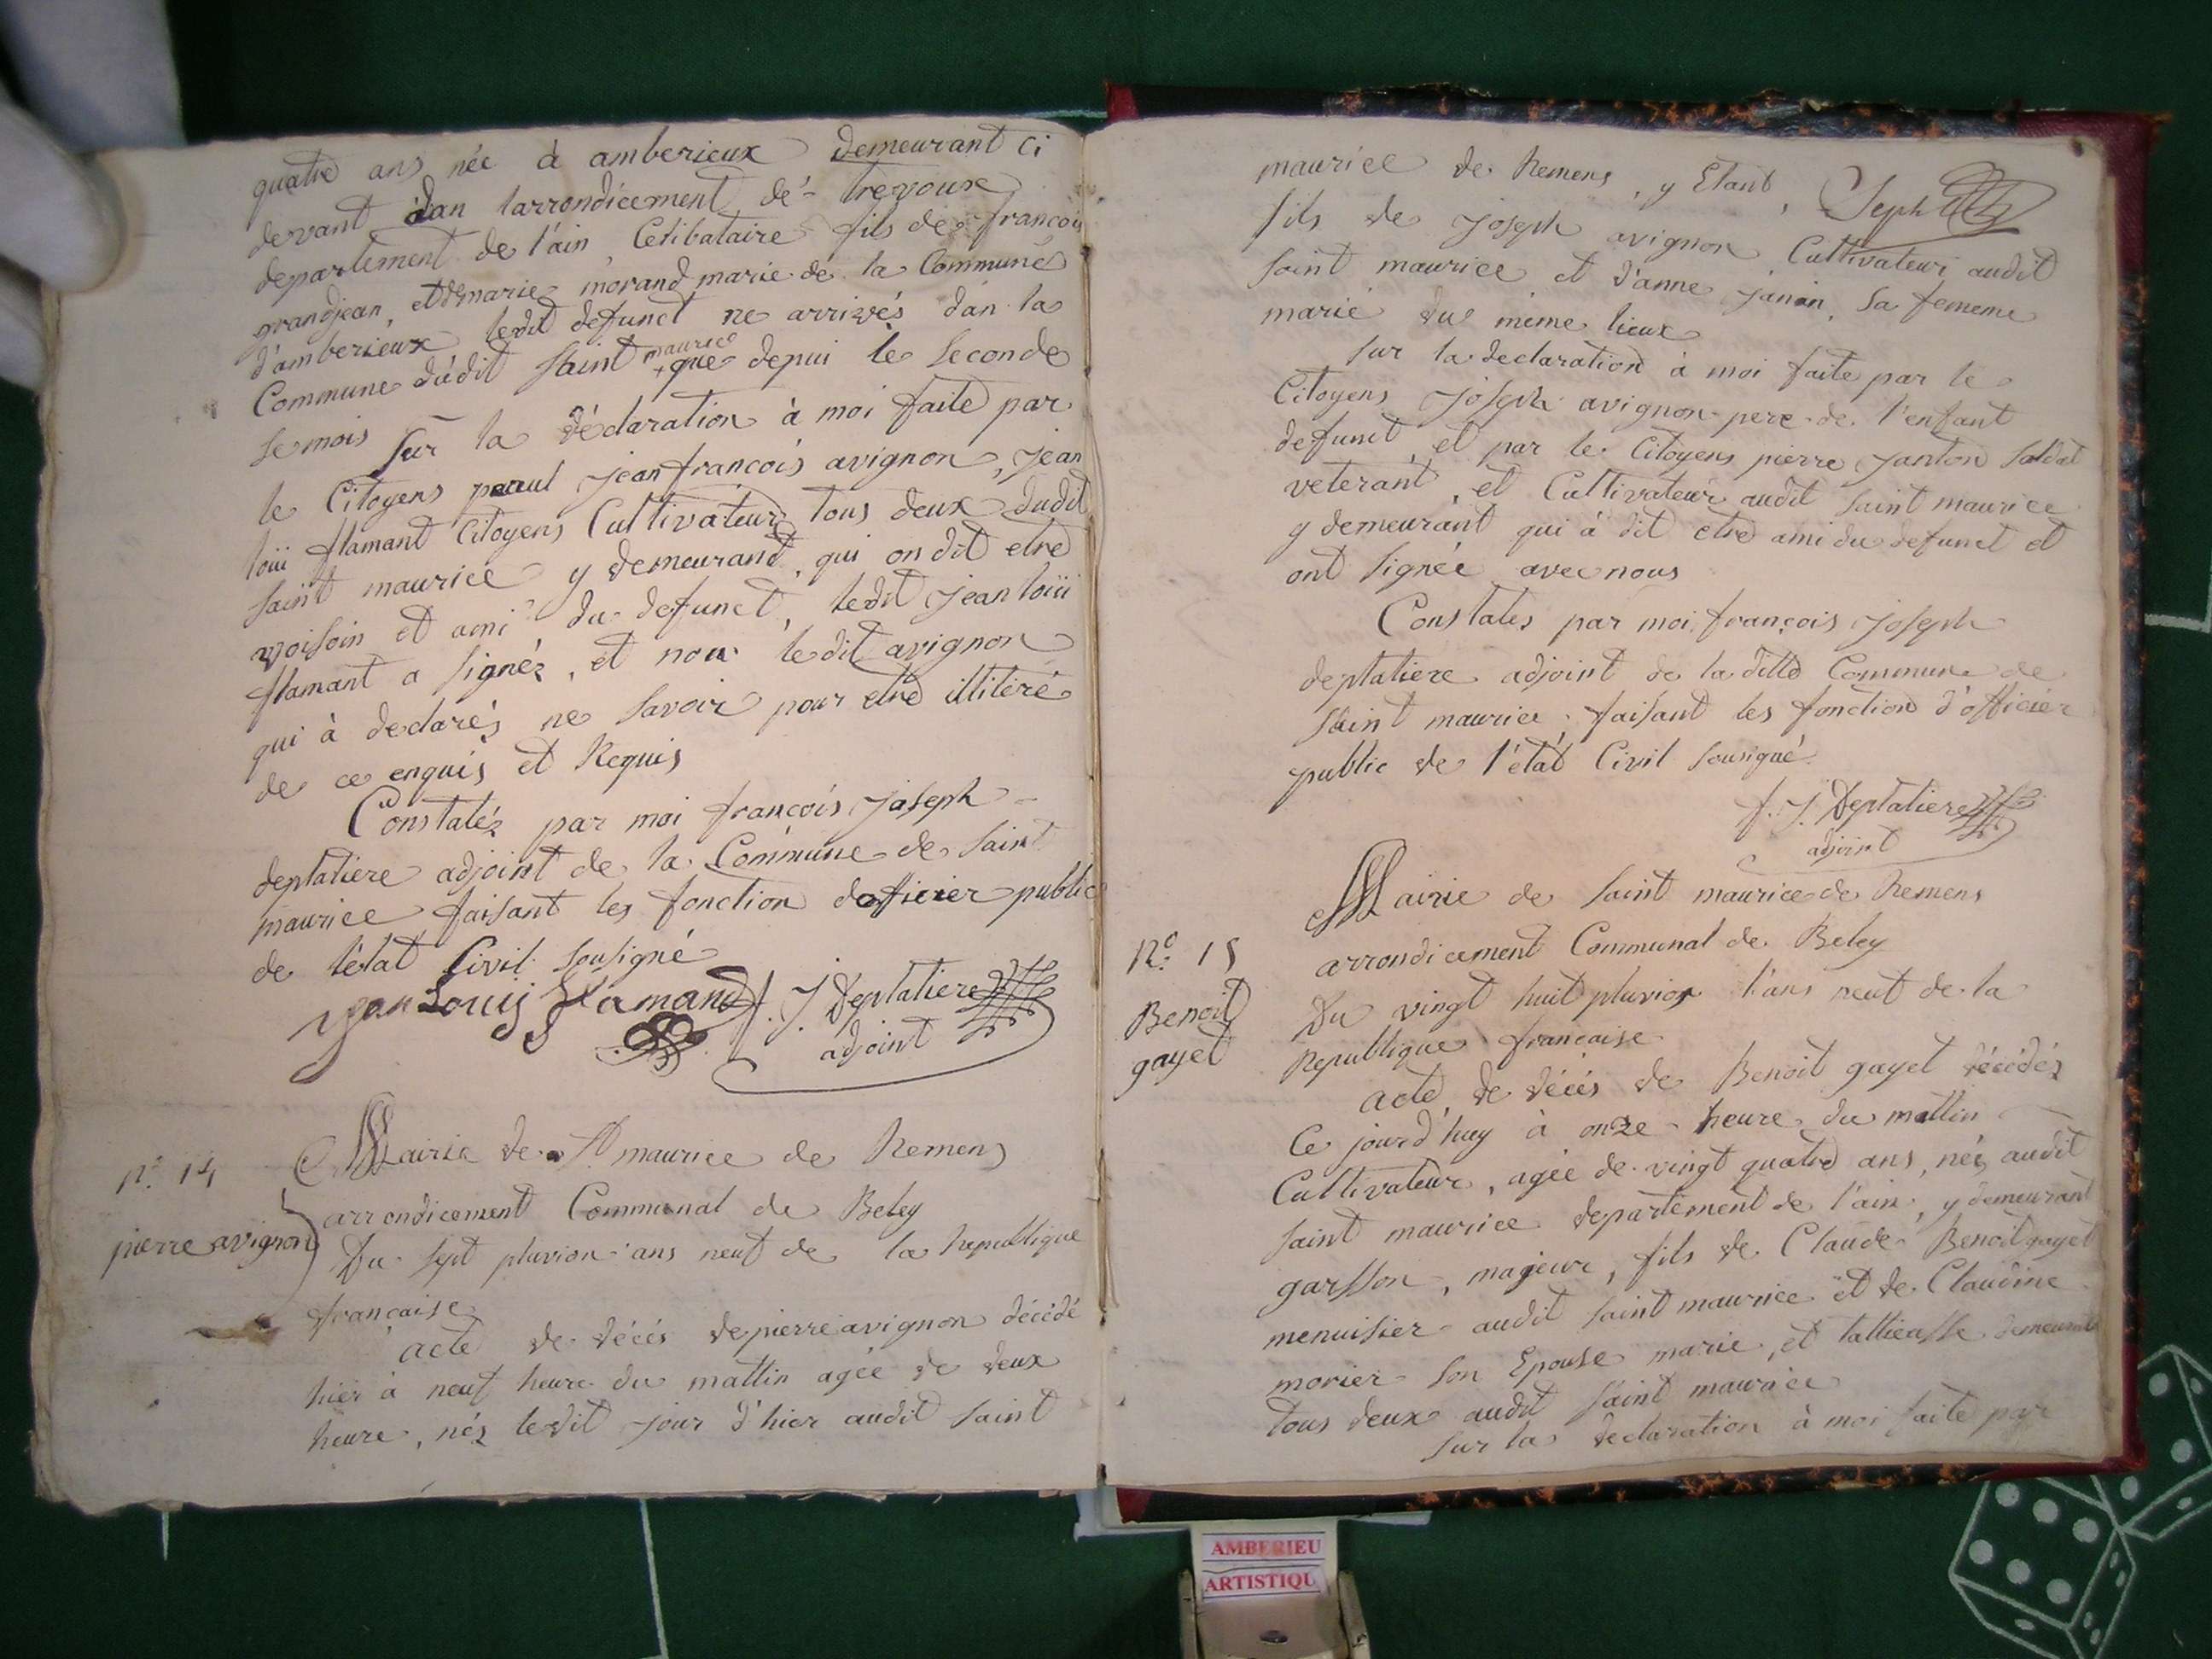 quatre ans née à amberieux demeurant ci
devant dan larrondicement de trevoux
departement de l'ain Celibataire fils de françois
grandjean, et de marie morand marie de la Commune
d'amberieux ledit defunct ne arrivés dan la
Commune dudit Saint maurice que depui le seconde
se mois Sur la déclaration à moi faite par
le Citoyens paul jean françois avignon, jean
loüi flamant Citoyens Cultivateur tous deux dudit
saint maurice y demeurand, qui on dit etre
voisoin et ami du defunct, ledit jean loüi
flamant a signéz, et non ledit avignon
qui à declarés ne savoir pour etre illitéré
de ce enquis et Requis
Constatéz par moi françois joseph
deplatiere adjoint de la Commune de saint
maurice faisant les fonction doficier public
de l'état Civil sousigné
jean Louis flamand f. J. Deplatiere
adjoint
N° 14
pierre avignon
Mairie de St maurice de Remens
arrondicement Communal de Beley
Du sept pluvion ans neuf de la Republique
française
acte de décés de pierre avignon décédé
hier à neuf heure du mattin agée de deux
heure, néz ledit jour d'hier audit saint
maurice de Remens, y Etant,
fils de joseph avignon Cultivateur audit
saint maurice et d'anne janin, sa fememe
marié du même lieux
sur la declaration à moi faite par le
Citoyens joseph avignon pere de l'enfant
defunct, et par le Citoyens pierre janton soldat
veterant, et Cultivateur audit saint maurice
y demeurant qui à dit etre ami du defunct et
ont signée avec nous
Constates par moi françois joseph
deplatiere adjoint de la ditte Commune de
saint maurice faisant les fonction d'officier
public de l'état Civil sousigné
f. J. Deplatiere
adjoint
N° 15
Benoit
gayet
Mairie de saint maurice de Remens
arrondicement Communal de Beley
Du vingt huit pluvion l'ans neuf de la
Republique française
acte de décés de Benoit gayet décédéz
Ce jourd'huy à onze heure du mattin
Cultivateur, agée de vingt quatre ans, néz audit
saint maurice departement de l'ain, y demeurant
garsson, majeur, fils de Claude Benoit gayet
menuisier audit saint maurice et de Claudine
morier son Epouse marie, et tallieusse demeurant
tous deux audit saint maurice
sur la declaration à moi faite par
AMBERIEU
ARTISTIQU